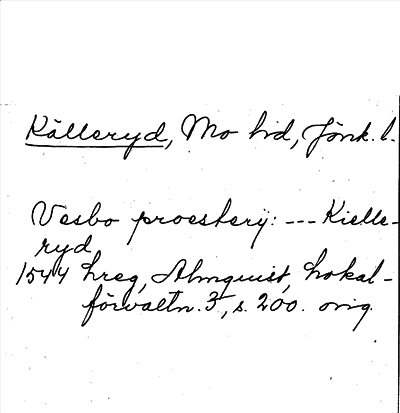 Källeryd, Mo hd, Jönk. l.
Vesbo proesterij: --- Kielle-
ryd
1544 hreg, Almquist, Lokal-
förvaltn. 3, s. 200. orig.